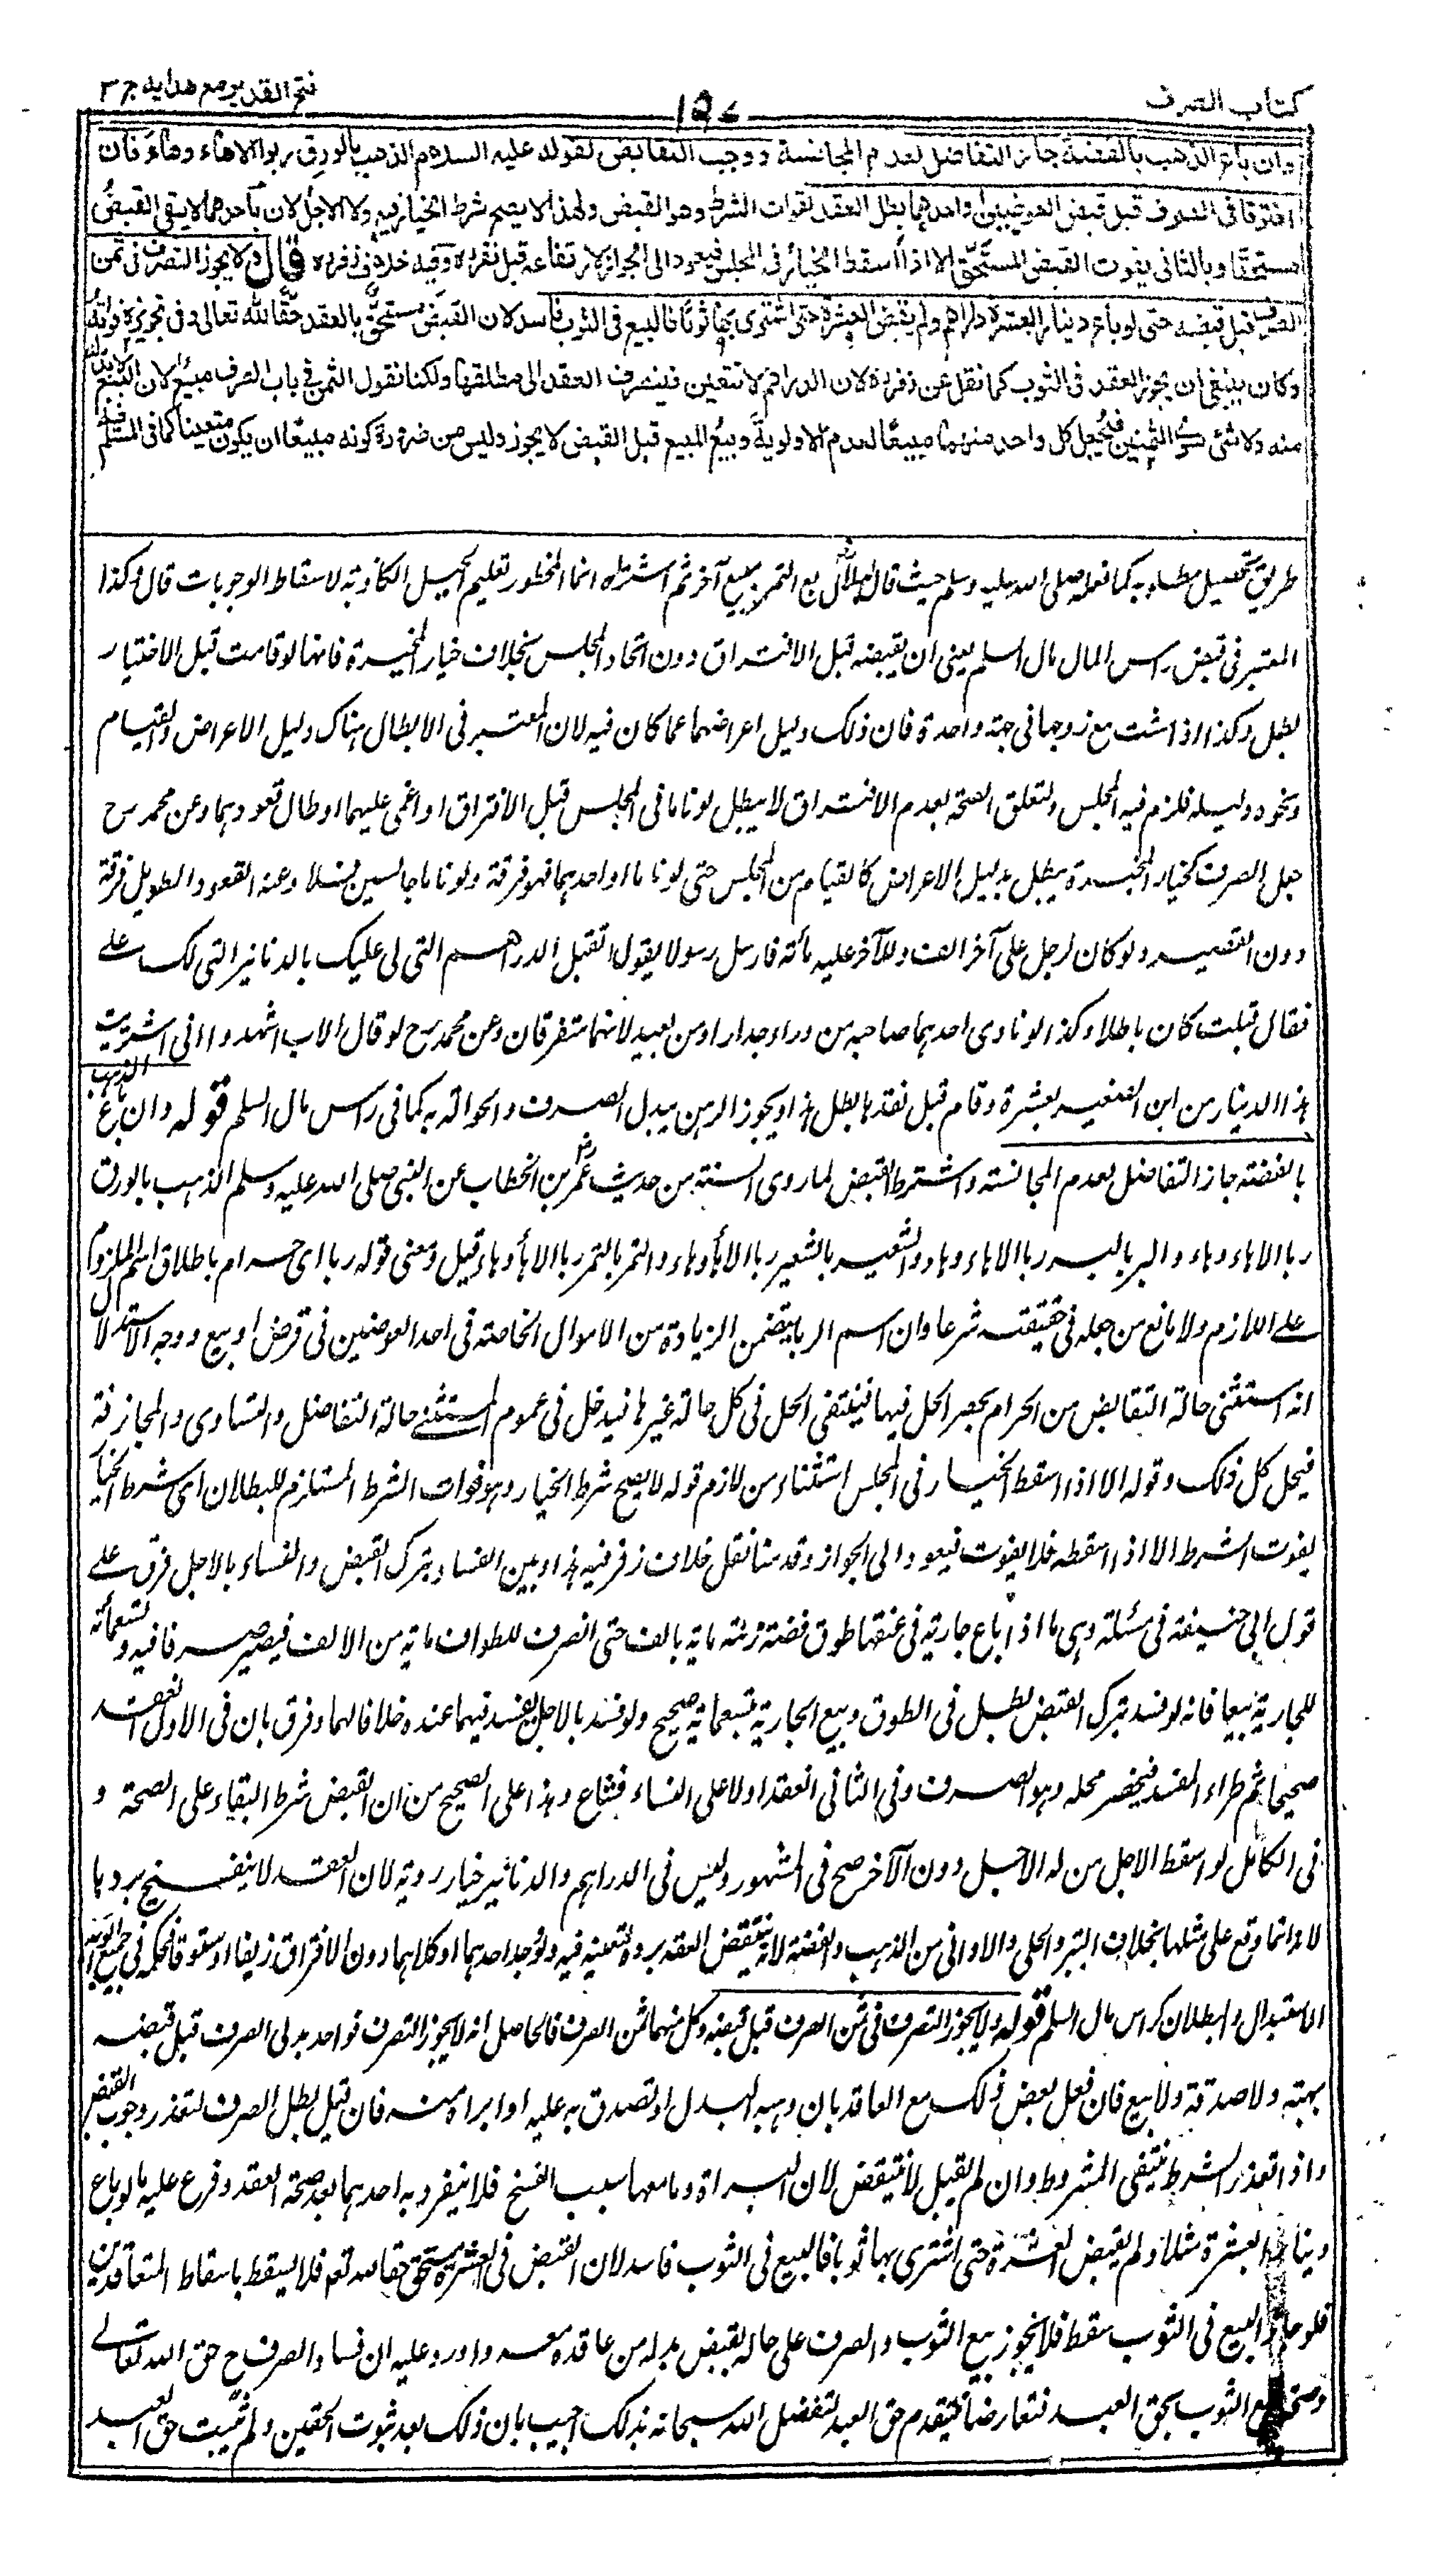 كتاب الصرف
١٥٧
فتح القدير مع هدايه ج ٣
وان باع الذهب بالفضة جاز التفاضل لعدم المجانسة ووجب التقابض لقوله عليه السلام الذهب بالورق ربوا الا هاء وهاء فان
افترقا فى الصرف قبل قبض العوضين او احدهما بطل العقد لفوات الشرط وهو القبض ولهذا لا يصح شرط الخيار فيه ولا الاجل لان باحدهما لا يبقى القبض
مستحقا وبالثانى يفوت القبض المستحق الا اذا اسقط الخيار فى المجلس فيعود الى الجواز لارتفاعه قبل تقرره وفيه خلاف زفره قال ولا يجوز التصرف فى ثمن
الصرف قبل قبضه حتى لو باع دينارا بعشرة دراهم ولم يقبض العشرة حتى اشترى بها ثوبا فالبيع فى الثوب فاسد لان القبض مستحق بالعقد حقا لله تعالى وفى تجويزه فواته
وكان ينبغى ان يجوز العقد فى الثوب كما نقل عن زفره لان الدراهم لا تتعين فينصرف العقد الى مطلقها ولكنا نقول الثمن فى باب الصرف مبيع لان البيع لا بد له
منه ولا شئ سوى الثمنين فيجعل كل واحد منهما مبيعا لعدم الاولوية وبيع المبيع قبل القبض لا يجوز وليس من ضرورة كونه مبيعا ان يكون متعينا كما فى المسلم فيه
طريق تحصيل مطلوبه كما فعله صلى الله عليه وسلم حيث قال لبلال بع التمر ببيع آخر ثم اشتراه انما المحظور تعليم الحيل الكاذبة لاسقاط الوجوبات قال وكذا
المعتبر فى قبض راس المال مال السلم يعنى ان يقبضه قبل الافتراق دون اتحاد المجلس بخلاف خيار المخيرة فانها لو قامت قبل الاختيار
بطل وكذا اذا مشت مع زوجها فى جهة واحدة فان ذلك دليل اعراضهما عما كان فيه لان المعتبر فى الابطال هناك دليل الاعراض والقيام
ونحوه دليله فلزم فيه المجلس ولتعلق الصحة بعدم الافتراق لا يبطل لو ناما فى المجلس قبل الافتراق او اغمى عليهما او طال قعودهما وعن محمد رح
جعل الصرف كخيار المخيرة يبطل بدليل الاعراض كالقيام من المجلس حتى لو ناما او احدهما فهو فرقة ولو ناما جالسين فلا وعنه القعود الطويل فرقة
دون القصير ولو كان لرجل على آخر الف وللآخر عليه مائة فارسل رسولا يقول اتقبل الدراهم التى لى عليك بالدنانير التى لك على
فقال قبلت كان باطلا وكذا لو نادى احدهما صاحبه من وراء جدار او من بعيد لانهما متفرقان وعن محمد رح لو قال الاب اشهدوا انى اشتريت
هذا الدينار من ابن الصغير بعشرة وقام قبل نقدها بطل هذا ويجوز الرهن ببدل الصرف والحوالة به كما فى راس مال السلم قوله وان باع الذهب
بالفضة جاز التفاضل لعدم المجانسة واشترط القبض لما روى الستة من حديث عمر بن الخطاب رض عن النبى صلى الله عليه وسلم الذهب بالورق
ربا الا هاء وهاء والبر بالبر ربا الا هاء وهاء والشعير بالشعير ربا الا هاء وهاء والتمر بالتمر ربا الا هاء وهاء قيل ومعنى قوله ربا اى حرام باطلاق اسم الملزوم
على اللازم ولا مانع من جعله فى حقيقته شرعا وان اسم الربا يتضمن الزيادة من الاموال الخاصة فى احد العوضين فى قرض او بيع ووجه الاستدلال
انه استثنى حالة التقابض من الحرام بحصر الحل فيها فينتفى الحل فى كل حالة غيرها فيدخل فى عموم المستثنى حالة التفاضل والتساوى والمجازفة
فيحل كل ذلك وقوله الا اذا اسقط الخيار فى المجلس استثناء من لازم قوله لا يصح شرط الخيار وهو فوات الشرط المستلزم للبطلان اى شرط الخيار
يفوت الشرط الا اذا اسقطه فلا يفوت فيعود الى الجواز وقدمنا نقل خلاف زفر فيه هذا وبين الفساد بترك القبض والفساد بالاجل فرق على
قول ابى حنيفة فى مسئلة وهى ما اذا باع جارية فى عنقها طوق فضة زنته مائة بالف حتى انصرف للطوق مائة من الالف فيصير صرفا فيه وتسعمائة
للجارية بيعا فانه لو فسد بترك القبض بطل فى الطوق وبيع الجارية بتسعمائة صحيح ولو فسد بالاجل يفسد فيهما عنده خلافا لهما وفرق بان فى الاول انعقد
صحيحا ثم طراء المفسد فيخص محله وهو الصرف وفى الثانى انعقد اولا على الفساد فشاع وهذا على الصحيح من ان القبض شرط البقاء على الصحة و
فى الكامل لو اسقط الاجل من له الاجل دون الآخر صح فى المشهور وليس فى الدراهم والدنانير خيار رؤية لان العقد لا ينفسخ بردها
لانه انما وقع على مثلها بخلاف التبر والحلى والاوانى من الذهب والفضة لانه ينتقض العقد برده لتعينه فيه ولو وجد احدهما او كلاهما دون الافتراق زيفا او ستوقا فالحكم فى جميع الوجوه
الاستبدال والبطلان كراس مال السلم قوله ولا يجوز التصرف فى ثمن الصرف قبل قبضه وكل منهما ثمن الصرف فالحاصل انه لا يجوز التصرف فى احد بدلى الصرف قبل قبضه
بهبة ولا صدقة ولا بيع فان فعل بعض ذلك مع العاقد بان وهبه البدل او تصدق به عليه او ابراه منه فان قبل بطل الصرف لتعذر وجوب القبض
واذا تعذر الشرط ينتفى المشروط وان لم يقبل لا ينتقض لان البراة وما معها سبب الفسخ فلا ينفرد به احدهما بعد صحة العقد وفرع عليه ما لو باع
دينارا بعشرة مثلا ولم يقبض العشرة حتى اشترى بها ثوبا فالبيع فى الثوب فاسد لان القبض فى العشرة مستحق حقا لله تعم فلا يسقط باسقاط المتعاقدين
فلو جاز البيع فى الثوب سقط فلا يجوز بيع الثوب والصرف على حاله يقبض بدله من عاقده معه واورد عليه ان فساد الصرف ح حق الله تعالى
وصحة بيع الثوب بحق العبد فتعارضا فيتقدم حق العبد لتفضل الله سبحانه بذلك اجيب بان ذلك بعد ثبوت الحقين ولم يثبت حق العبد